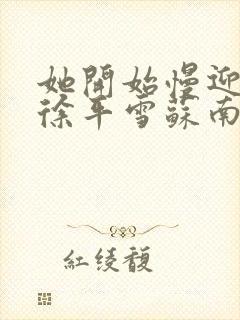 她開始慢迎
徐平雪蘇南
紅绫馥